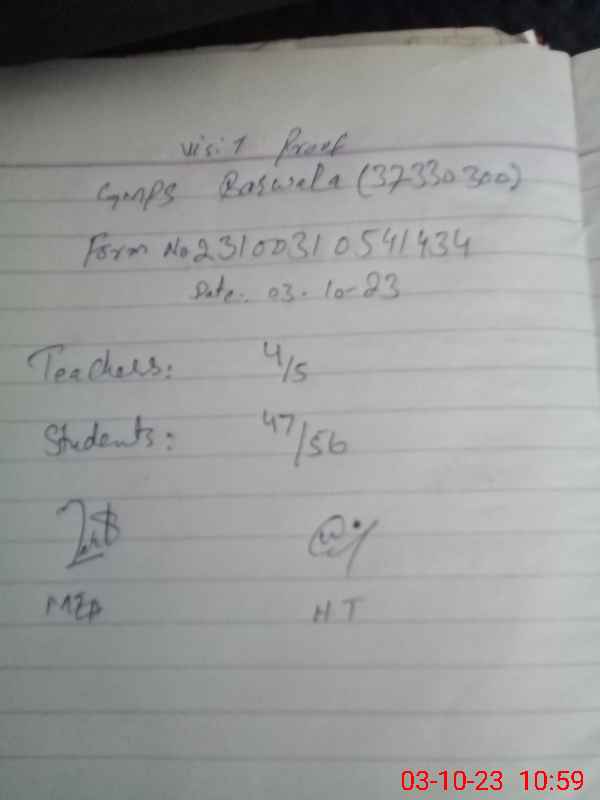 Visit Proof
GMPS Baswala (37330300)
Form No 2310031 0541434
Date: 03-10-23
Teachers: 4/5
Students: 47/56
MEA HT
03-10-23 10:59